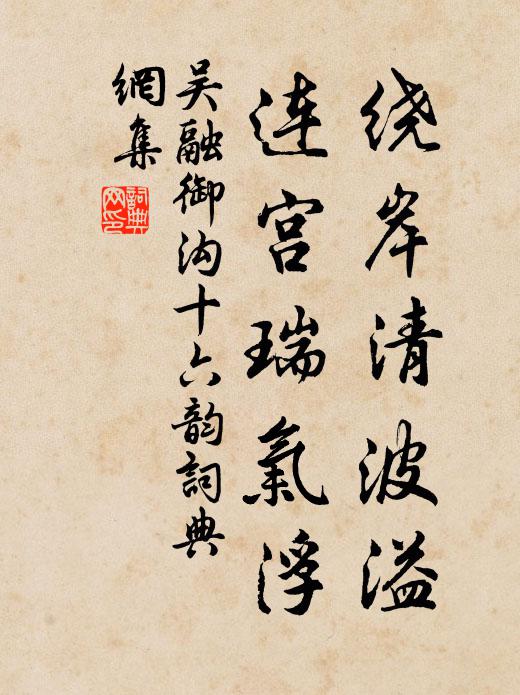 绕岸清波溢
连宫瑞氣浮
吴融御沟十六韵词典
網集
詞典網印